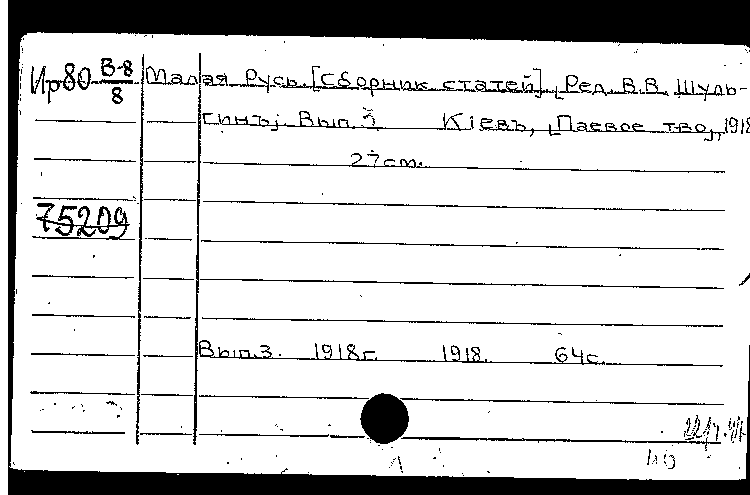 Ир80 В-8/8 Малая Русь. [Сборник статей]. [Ред. В.В. Шуль-
гинъ]. Вып. 3 Кіевъ, [Паевое т-во], 1918
27см.
75209
Вып.3. 1918г. 1918. 64с.